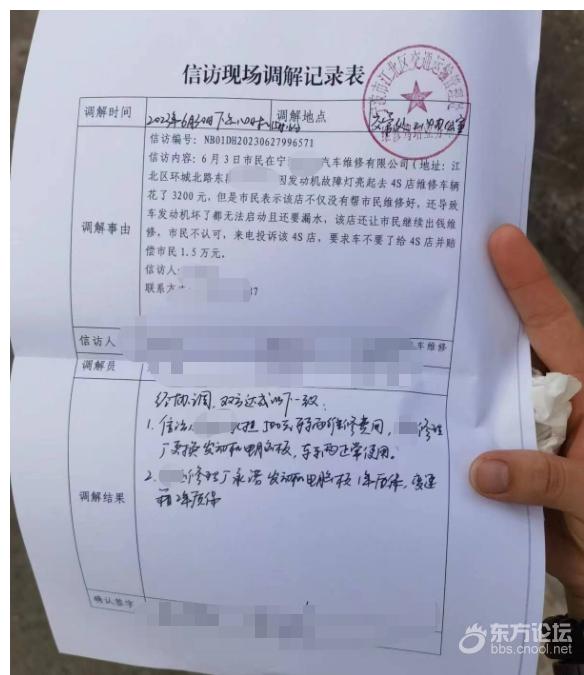 信访现场调解记录表
调解时间
2023年6月30日下午
调解地点
信访编号: NB01DH20230627996571
信访内容: 6 月 3 日市民在宁 汽车维修有限公司 (地址: 江
北区环城北路东 因发动机故障灯亮起去 4S 店维修车辆
花了 3200 元, 但是市民表示该店不仅没有帮市民维修好, 还导致
车发动机坏了都无法启动且还要漏水, 该店还让市民继续出钱维
修, 市民不认可, 来电投诉该 4S 店, 要求车不要了给 4S 店并赔
偿市民 1.5 万元。
调解事由
信访人:
联系方
信访人
车维修
调解员
经协调, 双方达成以下一致:
1. 信访 承担 500元车辆维修费用, 修理
厂更换发动机电脑板, 车辆正常使用。
2. 修理厂承诺发动机电脑板1年质保, 变速
箱2年质保
调解结果
确认签字
东方论坛
bbs.cnool.net